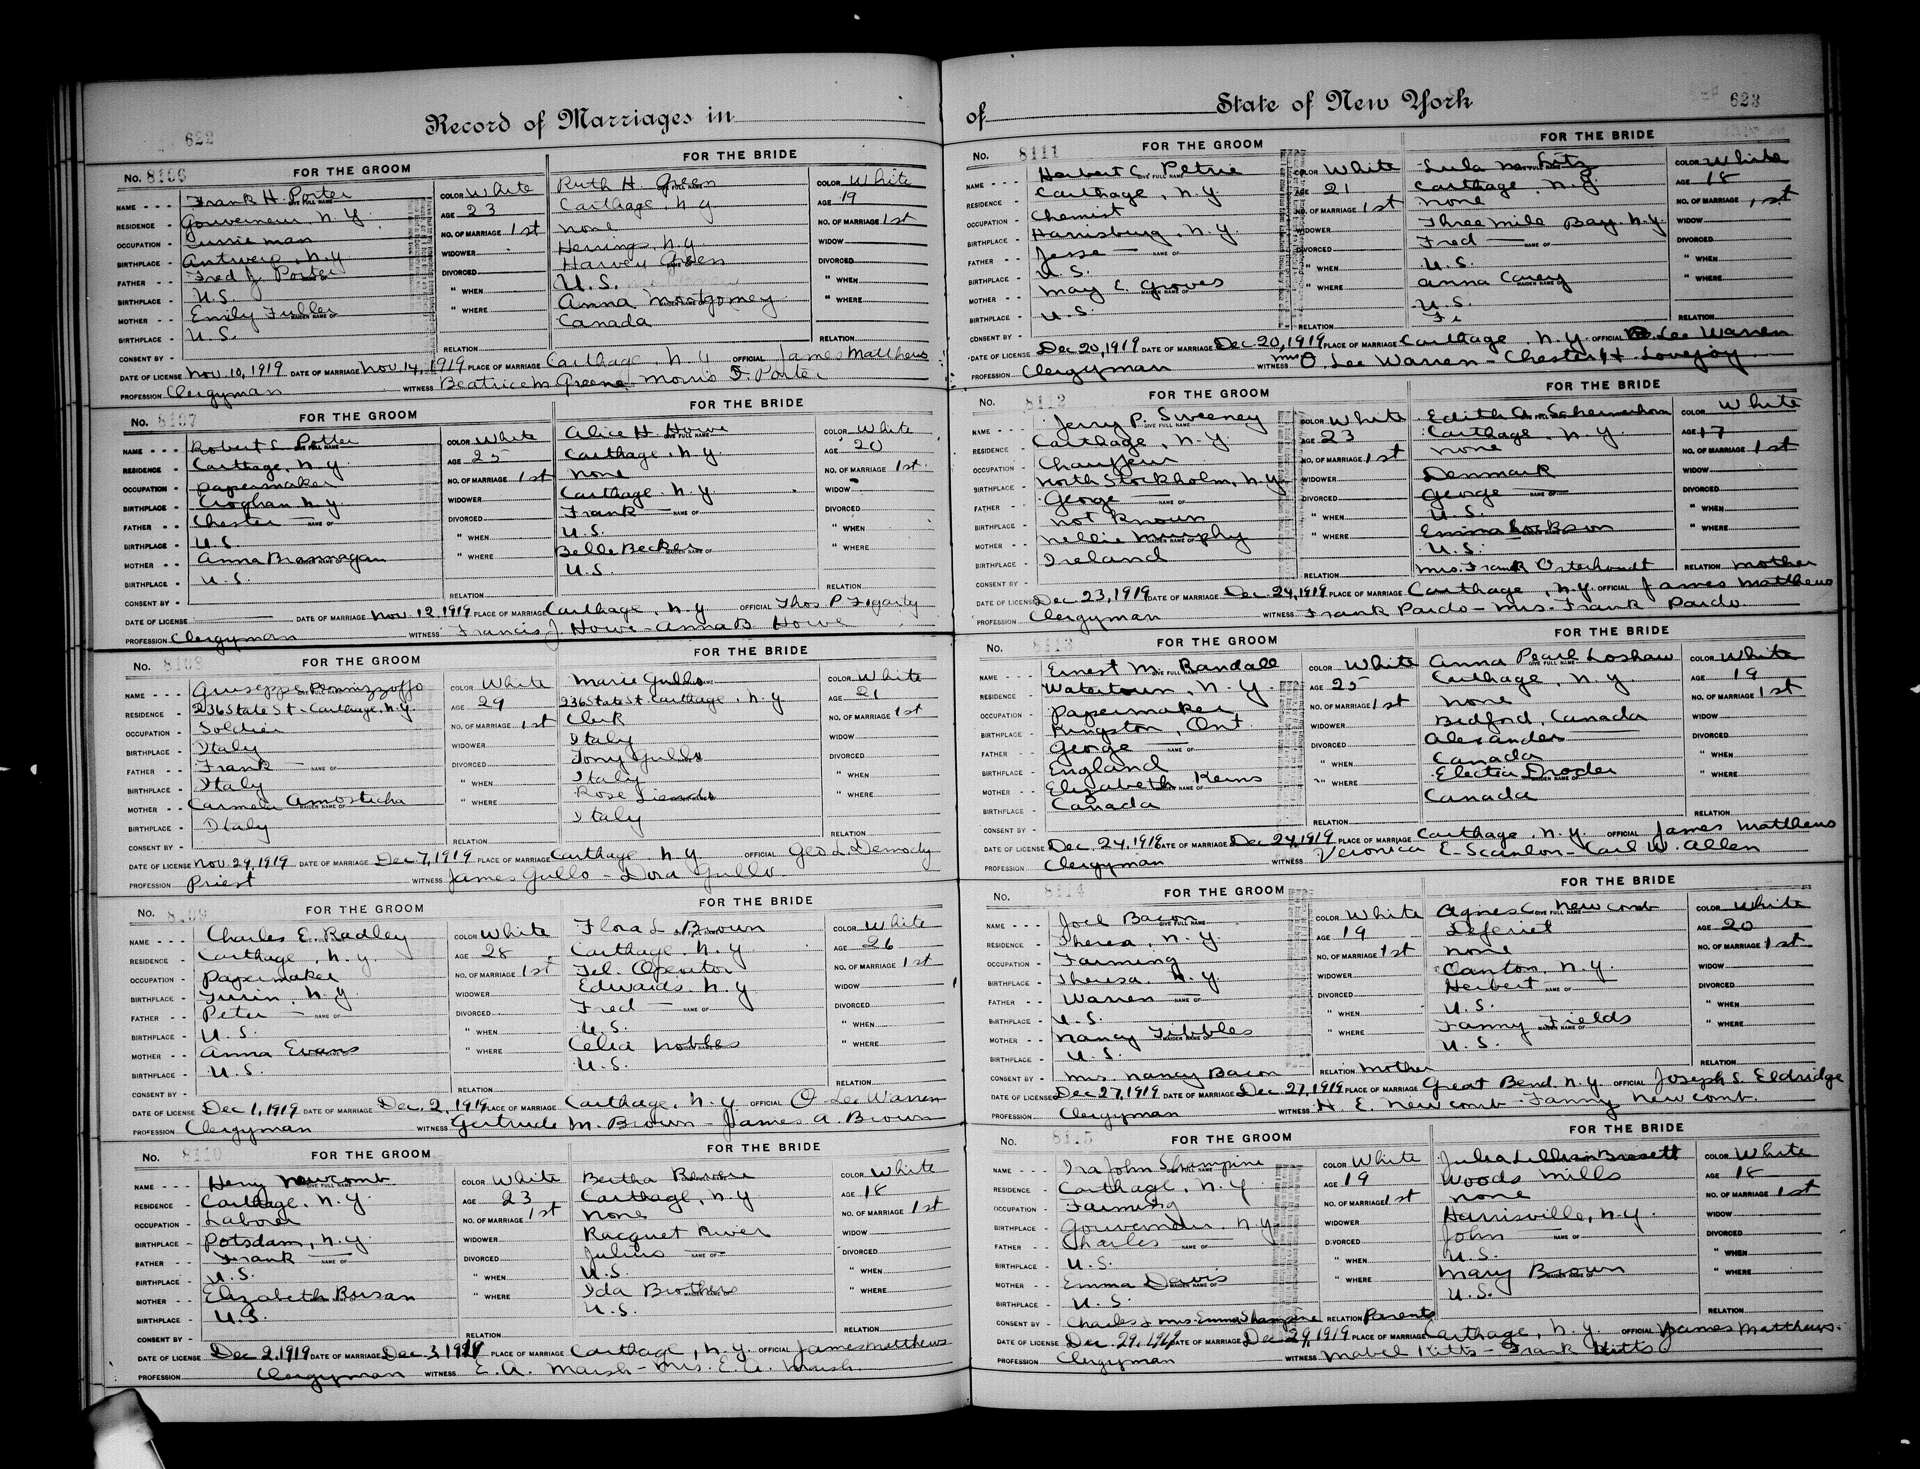 622
Record of Marriages in
No. 8106 FOR THE GROOM FOR THE BRIDE
NAME Frank H. Porter GIVE FULL NAME COLOR White Ruth H. Green GIVE FULL NAME COLOR White
RESIDENCE Gouverneur N.Y. AGE 23 Carthage, N.Y AGE 19
OCCUPATION NO. OF MARRIAGE 1st None NO. OF MARRIAGE 1st
BIRTHPLACE Antwerp, N.Y WIDOWER Herrings, N.Y WIDOW
FATHER Fred J. Porter DIVORCED Harvey Green NAME OF DIVORCED
BIRTHPLACE U.S. " WHEN U.S. " WHEN
MOTHER Emily Fuller MAIDEN NAME OF " WHERE Anna Montgomey MAIDEN NAME OF " WHERE
BIRTHPLACE U.S. Canada
CONSENT BY RELATION RELATION
DATE OF LICENSE Nov. 10, 1919 DATE OF MARRIAGE Nov 14, 1919 PLACE OF MARRIAGE Carthage, N.Y OFFICIAL James Matthews
PROFESSION Clergyman WITNESS Beatrice M Greene Morris F. Porter
No. 8107 FOR THE GROOM FOR THE BRIDE
NAME Robert S. Potter GIVE FULL NAME COLOR White Alice H. Howe GIVE FULL NAME COLOR White
RESIDENCE Carthage, N.Y AGE 25 Carthage, N.Y. AGE 20
OCCUPATION Papermaker NO. OF MARRIAGE 1st None NO. OF MARRIAGE 1st
BIRTHPLACE Croghan N.Y. WIDOWER Carthage, N.Y. WIDOW
FATHER Chester NAME OF DIVORCED Frank NAME OF DIVORCED
BIRTHPLACE U.S " WHEN U.S. " WHEN
MOTHER Anna Brannagan MAIDEN NAME OF " WHERE Belle Becker MAIDEN NAME OF " WHERE
BIRTHPLACE U.S. U.S.
CONSENT BY RELATION RELATION
DATE OF LICENSE DATE OF MARRIAGE Nov. 12, 1919 PLACE OF MARRIAGE Carthage, N.Y OFFICIAL Thos P. Fogarty
PROFESSION Clergyman WITNESS Francis J Howe - Anna B Howe
No. 8108 FOR THE GROOM FOR THE BRIDE
NAME Guiseppe GIVE FULL NAME COLOR White Marie Gullo COLOR White
RESIDENCE 236 State St - Carthage, N.Y. AGE 29 236 State St. Carthage, N.Y AGE 21
OCCUPATION Soldier NO. OF MARRIAGE 1st Clerk NO. OF MARRIAGE 1st
BIRTHPLACE Italy WIDOWER Italy WIDOW
FATHER Frank NAME OF DIVORCED Tony Gullo DIVORCED
BIRTHPLACE Italy " WHEN Italy " WHEN
MOTHER Carmela MAIDEN NAME OF " WHERE Rose " WHERE
BIRTHPLACE Italy Italy
CONSENT BY RELATION RELATION
DATE OF LICENSE Nov. 29, 1919 DATE OF MARRIAGE Dec 7, 1919 PLACE OF MARRIAGE Carthage, N.Y OFFICIAL Geo L. Demody
PROFESSION Priest WITNESS James Gullo - Dora Gullo
No. 8109 FOR THE GROOM FOR THE BRIDE
NAME Charles E. Radley COLOR White Flora L. Brown COLOR White
RESIDENCE Carthage, N.Y. AGE 28 Carthage, N.Y AGE 26
OCCUPATION Papermaker NO. OF MARRIAGE 1st Tel. Operator NO. OF MARRIAGE 1st
BIRTHPLACE Turin, N.Y WIDOWER Edwards, N.Y WIDOW
FATHER Peter NAME OF DIVORCED Fred NAME OF DIVORCED
BIRTHPLACE U.S. " WHEN U.S. " WHEN
MOTHER Anna Evans " WHERE Celia Nobles " WHERE
BIRTHPLACE U.S. U.S.
CONSENT BY RELATION RELATION
DATE OF LICENSE Dec 1, 1919 DATE OF MARRIAGE Dec. 2, 1919 PLACE OF MARRIAGE Carthage, N.Y. OFFICIAL O Lee Warren
PROFESSION Clergyman WITNESS Gertrude M. Brown - James A. Brown
No. 8110 FOR THE GROOM FOR THE BRIDE
NAME Henry Newcomb GIVE FULL NAME COLOR White Bertha COLOR White
RESIDENCE Carthage, N.Y. AGE 23 Carthage, N.Y AGE 18
OCCUPATION Laborer NO. OF MARRIAGE 1st None NO. OF MARRIAGE 1st
BIRTHPLACE Potsdam, N.Y. WIDOWER Racquet River WIDOW
FATHER Frank NAME OF DIVORCED Julius NAME OF DIVORCED
BIRTHPLACE U.S. " WHEN U.S. " WHEN
MOTHER Elizabeth Rusan " WHERE Ida Brothers " WHERE
BIRTHPLACE U.S. U.S.
CONSENT BY RELATION RELATION
DATE OF LICENSE Dec 2, 1919 DATE OF MARRIAGE Dec 3, 1919 PLACE OF MARRIAGE Carthage, N.Y. OFFICIAL James Matthews
PROFESSION Clergyman WITNESS E.A. Marsh - Mrs. E.A. Marsh
of State of New York 623
No. 8111 FOR THE GROOM FOR THE BRIDE
NAME Herbert C. Petrie GIVE FULL NAME COLOR White Lula M. Lutz COLOR White
RESIDENCE Carthage, N.Y. AGE 21 Carthage, N.Y. AGE 18
OCCUPATION Chemist NO. OF MARRIAGE 1st None NO. OF MARRIAGE 1st
BIRTHPLACE Harrisburg, N.Y. WIDOWER Three Mile Bay, N.Y. WIDOW
FATHER Jesse NAME OF DIVORCED Fred NAME OF DIVORCED
BIRTHPLACE U.S. " WHEN U.S. " WHEN
MOTHER May E. Groves MAIDEN NAME OF " WHERE Anna Carey MAIDEN NAME OF " WHERE
BIRTHPLACE U.S. U.S.
CONSENT BY RELATION RELATION
DATE OF LICENSE Dec 20, 1919 DATE OF MARRIAGE Dec 20, 1919 PLACE OF MARRIAGE Carthage, N.Y. OFFICIAL O. Lee Warren
PROFESSION Clergyman WITNESS Mrs O. Lee Warren - Chester H. Lovejoy
No. 8112 FOR THE GROOM FOR THE BRIDE
NAME Jerry P. Sweeney GIVE FULL NAME COLOR White Edith A. Schermerhorn COLOR White
RESIDENCE Carthage, N.Y AGE 23 Carthage, N.Y. AGE 17
OCCUPATION Chauffeur NO. OF MARRIAGE 1st None NO. OF MARRIAGE 1st
BIRTHPLACE North Stockholm, N.Y. WIDOWER Denmark WIDOW
FATHER George NAME OF DIVORCED George NAME OF DIVORCED
BIRTHPLACE Not known " WHEN U.S. " WHEN
MOTHER Nellie Murphy MAIDEN NAME OF " WHERE Emma " WHERE
BIRTHPLACE Ireland U.S.
CONSENT BY RELATION Mrs. Frank Osterhoudt RELATION Mother
DATE OF LICENSE Dec 23, 1919 DATE OF MARRIAGE Dec. 24, 1919 PLACE OF MARRIAGE Carthage, N.Y. OFFICIAL James Matthews
PROFESSION Clergyman WITNESS Frank Pardo - Mrs. Frank Pardo
No. 8113 FOR THE GROOM FOR THE BRIDE
NAME Ernest M. Randall GIVE FULL NAME COLOR White Anna Pearl Loshaw GIVE FULL NAME COLOR White
RESIDENCE Watertown, N.Y. AGE 25 Carthage, N.Y. AGE 19
OCCUPATION Papermaker NO. OF MARRIAGE 1st None NO. OF MARRIAGE 1st
BIRTHPLACE Kingston, Ont. WIDOWER Bedford, Canada WIDOW
FATHER George NAME OF DIVORCED Alexander DIVORCED
BIRTHPLACE England " WHEN Canada " WHEN
MOTHER Elizabeth Kerns MAIDEN NAME OF " WHERE Electia MAIDEN NAME OF " WHERE
BIRTHPLACE Canada Canada
CONSENT BY RELATION RELATION
DATE OF LICENSE Dec. 24, 1919 DATE OF MARRIAGE Dec 24, 1919 PLACE OF MARRIAGE Carthage, N.Y. OFFICIAL James Matthews
PROFESSION Clergyman WITNESS Veronica E. Scanlon - Carl W. Allen
No. 8114 FOR THE GROOM FOR THE BRIDE
NAME Joel Bacon GIVE FULL NAME COLOR White Agnes C. Newcomb GIVE FULL NAME COLOR White
RESIDENCE Theresa, N.Y AGE 19 Deferiet AGE 20
OCCUPATION Farming NO. OF MARRIAGE 1st None NO. OF MARRIAGE 1st
BIRTHPLACE Theresa, N.Y. WIDOWER Canton, N.Y. WIDOW
FATHER Warren NAME OF DIVORCED Herbert NAME OF DIVORCED
BIRTHPLACE U.S. " WHEN U.S. " WHEN
MOTHER Nancy Tibbles MAIDEN NAME OF " WHERE Fanny Fields MAIDEN NAME OF " WHERE
BIRTHPLACE U.S. U.S.
CONSENT BY Mrs. Nancy Bacon RELATION Mother RELATION
DATE OF LICENSE Dec 27, 1919 DATE OF MARRIAGE Dec. 27, 1919 PLACE OF MARRIAGE Great Bend, N.Y. OFFICIAL Joseph S. Eldridge
PROFESSION Clergyman WITNESS H. E. Newcomb - Fanny Newcomb
No. 8115 FOR THE GROOM FOR THE BRIDE
NAME Ira John Shampine COLOR White Julia Lillian Bissett COLOR White
RESIDENCE Carthage, N.Y AGE 19 Woods Mills AGE 18
OCCUPATION Farming NO. OF MARRIAGE 1st None NO. OF MARRIAGE 1st
BIRTHPLACE Gouverneur, N.Y WIDOWER Harrisville, N.Y. WIDOW
FATHER Charles NAME OF DIVORCED John NAME OF DIVORCED
BIRTHPLACE U.S. " WHEN U.S. " WHEN
MOTHER Emma Davis MAIDEN NAME OF " WHERE Mary Brown MAIDEN NAME OF " WHERE
BIRTHPLACE U.S. U.S.
CONSENT BY Charles & Mrs. Emma Shampine RELATION Parents RELATION
DATE OF LICENSE Dec. 29, 1919 DATE OF MARRIAGE Dec 29, 1919 PLACE OF MARRIAGE Carthage, N.Y. OFFICIAL James Matthews
PROFESSION Clergyman WITNESS Mabel Kitts - Frank Kitts